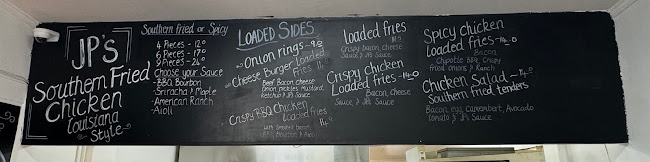 JP's
Southern Fried
Chicken
Louisiana
Style
Southern Fried or Spicy
4 Pieces - 12⁰
6 Pieces - 17⁰
9 Pieces - 24⁰
Choose your Sauce
- BBQ Bourbon
- Sriracha & Maple
- American Ranch
- Aioli
LOADED SIDES
Onion rings - 9.0
Cheese Burger Loaded
fries
Beef Bacon, cheese
Onion, pickles, Mustard,
Ketchup & JP's Sauce
Crispy BBQ Chicken
Loaded fries
with Smoked bacon
Loaded fries
Crispy bacon, cheese
Sauce & JP's Sauce
Crispy Chicken
Loaded fries - 14.0
Bacon, Cheese
Sauce & JP's Sauce
Spicy chicken
Loaded fries - 14.0
Bacon
Chipotle BBQ, Crispy
fried onions & Ranch
Chicken Salad - 14.0
Southern fried tenders
Bacon, egg, Camembert, Avocado
tomato & JP's Sauce